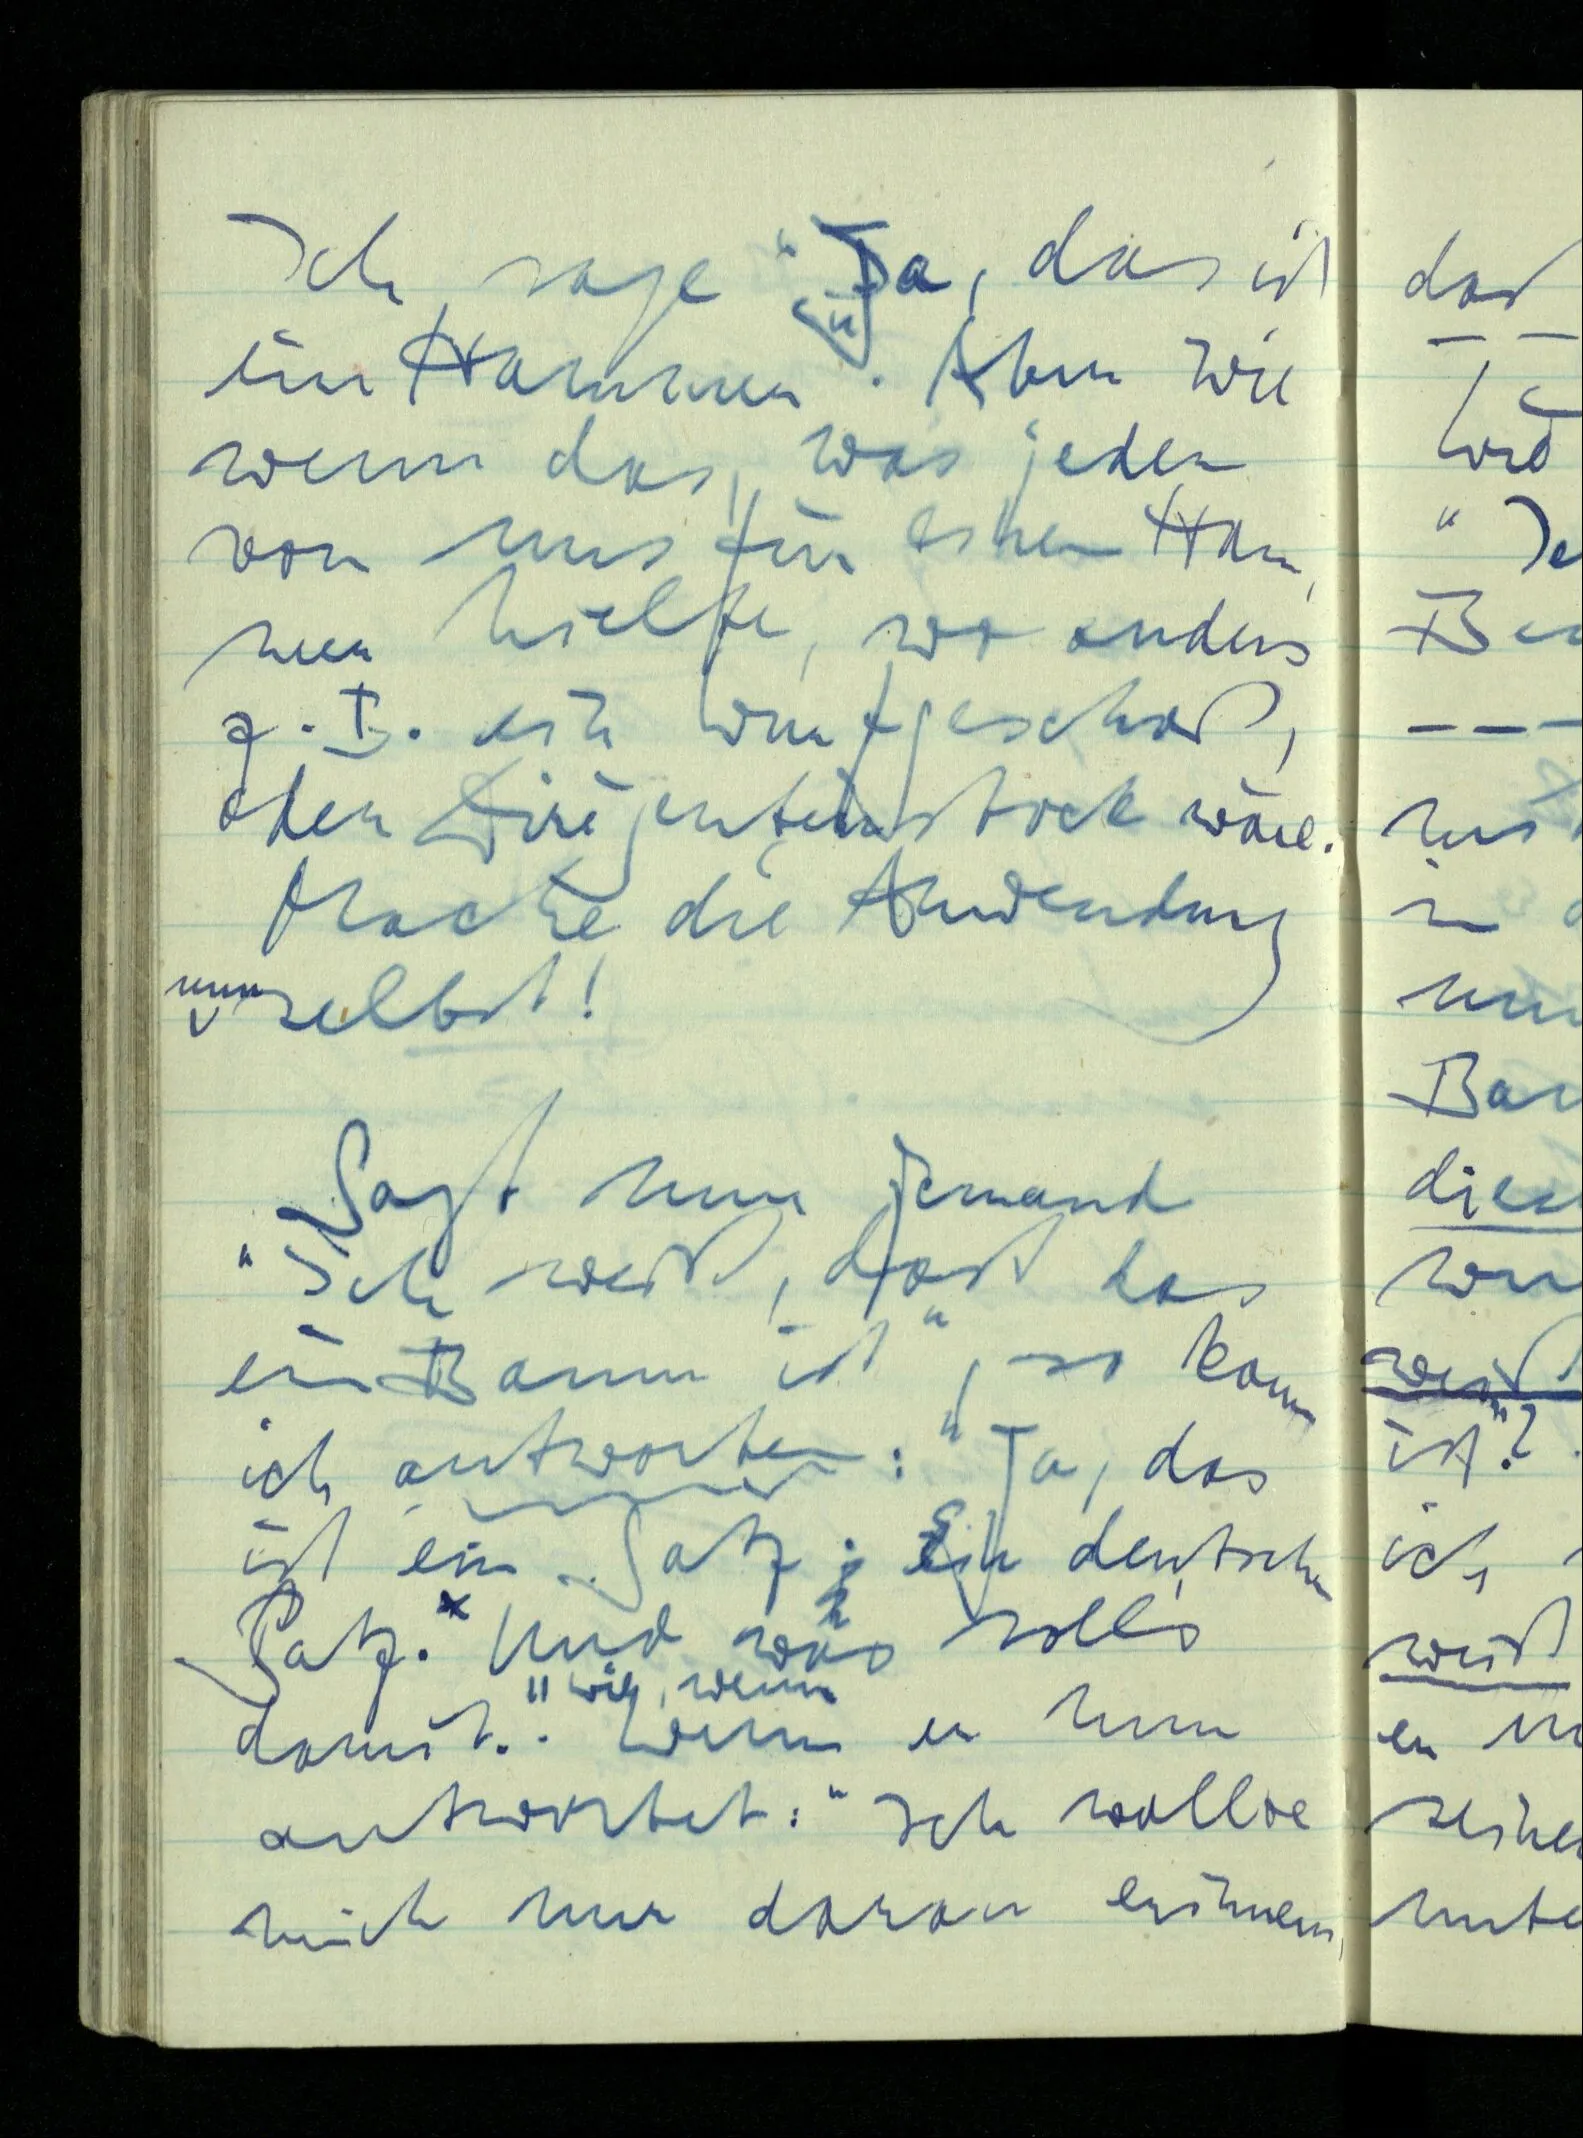 Ich sage “Ja, das ist
ein Hammer”. Aber wie
wenn das, was jeder
von uns für einen Ham-
mer hielte, wo anders
z. B. ein Wurfgeschoß,
oder Dirigentenstock wäre.
Mache die Anwendung
nun selbst!
Sagt nun jemand
“Ich weiß, daß das
ein Baum ist”, so kann
ich antworten: “Ja, das
ist ein Satz. Ein deutscher
Satz. Und was soll's
damit.” wie, wenn
Wenn er nun
antwortet: “Ich wollte
mich nur daran erinnern,
daß
wird
“Ic
Be
in
Bau
dies
weiß
ist”?
ich
weiß
er
seine
unte